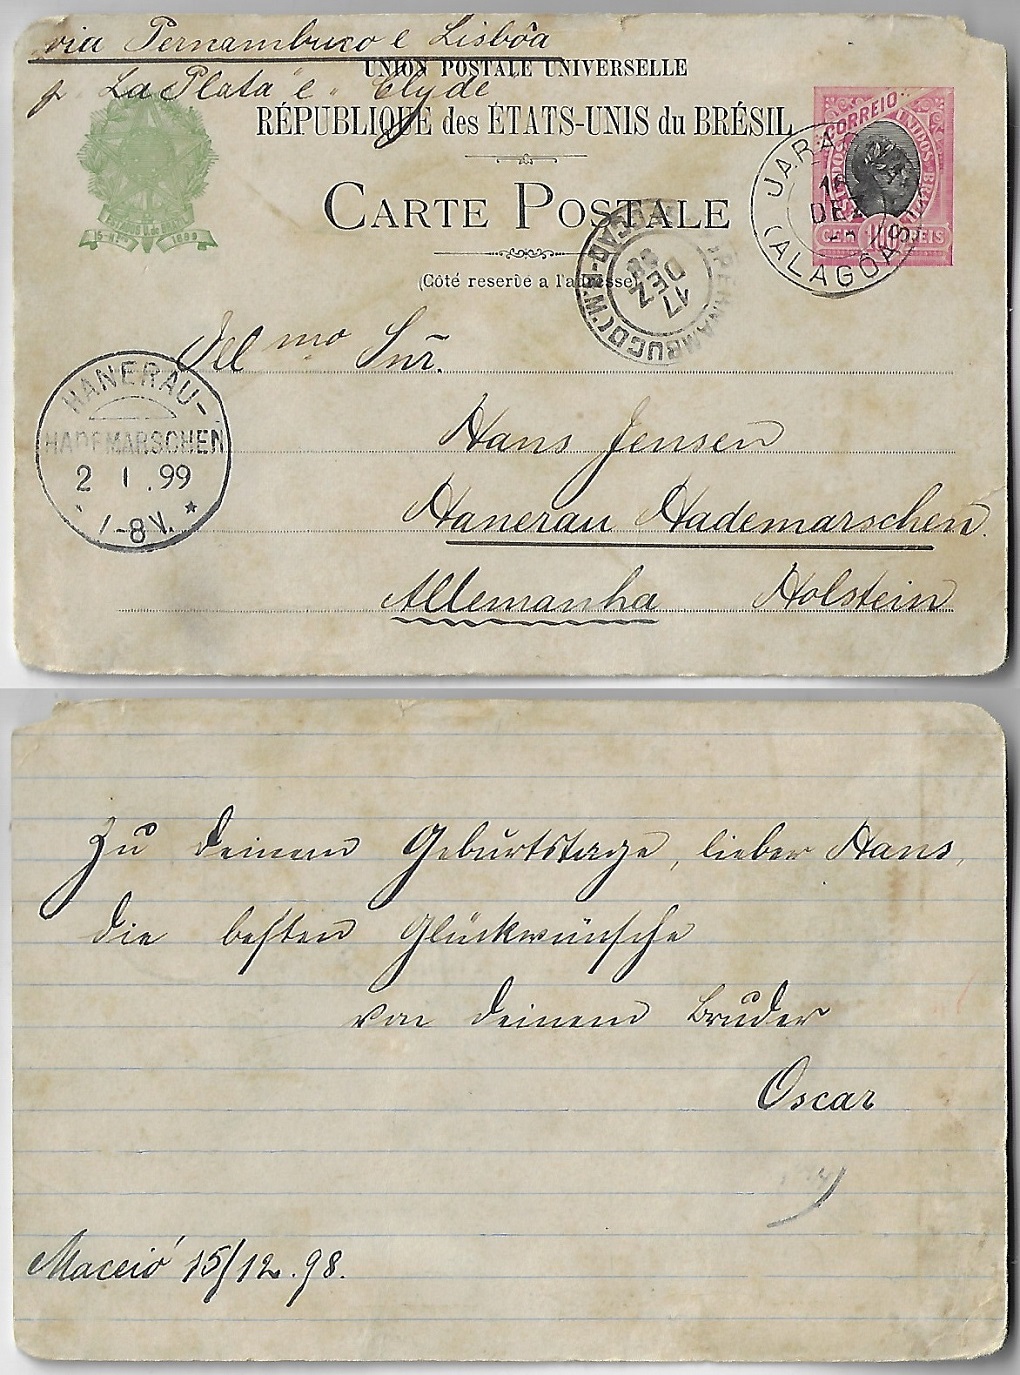 via Pernambuco e Lisbôa
p. "La Plata" e "Clyde"
UNION POSTALE UNIVERSELLE
RÉPUBLIQUE des ÉTATS-UNIS du BRÉSIL
CARTE POSTALE
(Côté reservé a l'adresse)
CORREIO
CEM REIS
JARAGUA
16
DEZ
98
(ALAGÔAS)
PERNAMBUCO
17
DEZ
98
HANERAU-
HADEMARSCHEN
2 1.99
7-8 V.
Ill mo Snr.
Hans Jensen
Hanerau Hademarschen.
Allemanha Holstein
Zu deinem Geburtstage, lieber Hans,
die besten Glückwünsche
von deinem Bruder
Oscar
Maceió 15/12.98.